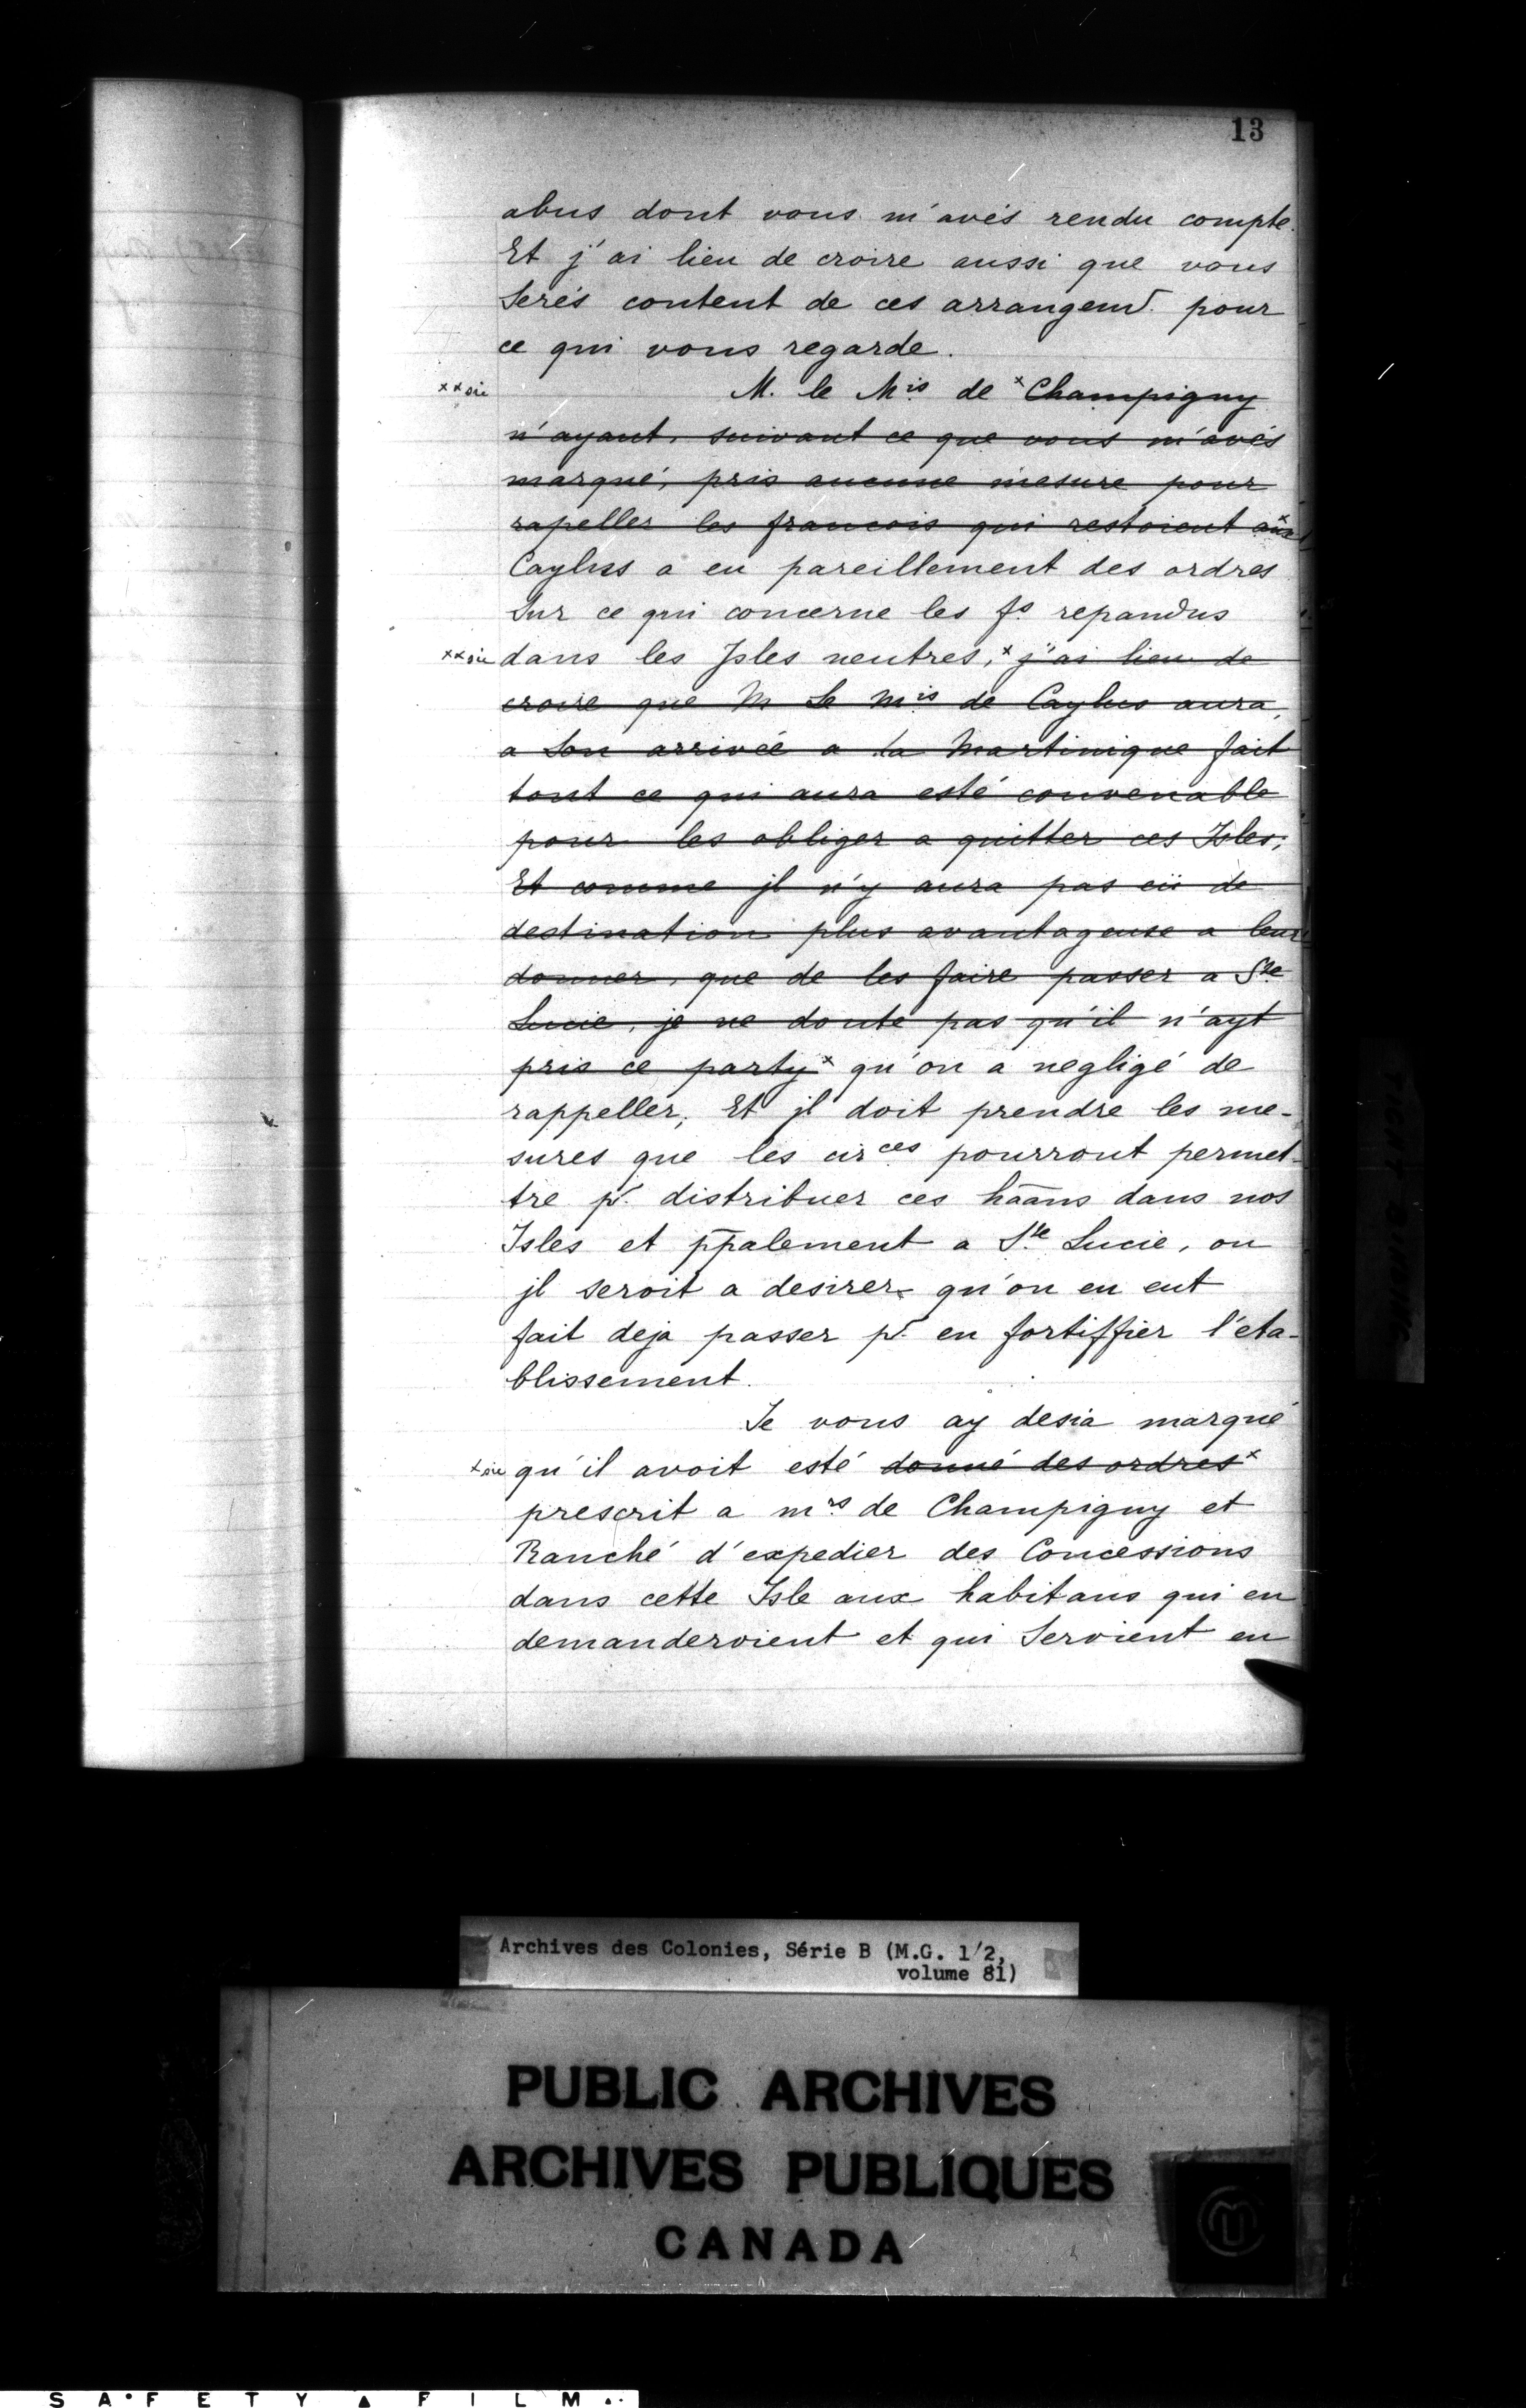 13
abus dont vous m'avés rendu compte.
Et j'ai lieu de croire aussi que vous
Serés content de ces arrangemt. pour
ce qui vous regarde.
xx sic M. le Mis de x Champigny
n'ayant, suivant ce que vous m'avés
marqué, pris aucune mesure pour
rapeller les francois qui restoient aux x
Caylus a eu pareillement des ordres
Sur ce qui concerne les fs. repandus
xx sic dans les Isles neutres, x j'ai lieu de
croire que M Le Mis de Caylus aura,
a Son arrivée a la Martinique fait
tout ce qui aura esté convenable
pour les obliger a quitter ces Isles;
Et comme jl n'y aura pas eü de
destination plus avantageuse a leur
donner, que de les faire passer a Ste
Lucie, je ne doute pas qu'il n'ayt
pris ce party x qu'on a negligé de
rappeller, Et jl doit prendre les me-
sures que les circes pourront permet-
tre pr. distribuer ces hāāns dans nos
Isles et p̄p̄alement a Ste Lucie, ou
jl seroit a desirer qu'on en eut
fait deja passer pr. en fortiffier l'eta-
blissement.
Je vous ay desia marqué
x sic qu'il avoit esté donné des ordres x
prescrit a mrs. de Champigny et
Ranché d'expedier des Concessions
dans cette Isle aux habitans qui en
demanderoient et qui Seroient en
Archives des Colonies, Série B (M.G. 1/2,
volume 81)
PUBLIC ARCHIVES
ARCHIVES PUBLIQUES
CANADA
SAFETY FILM